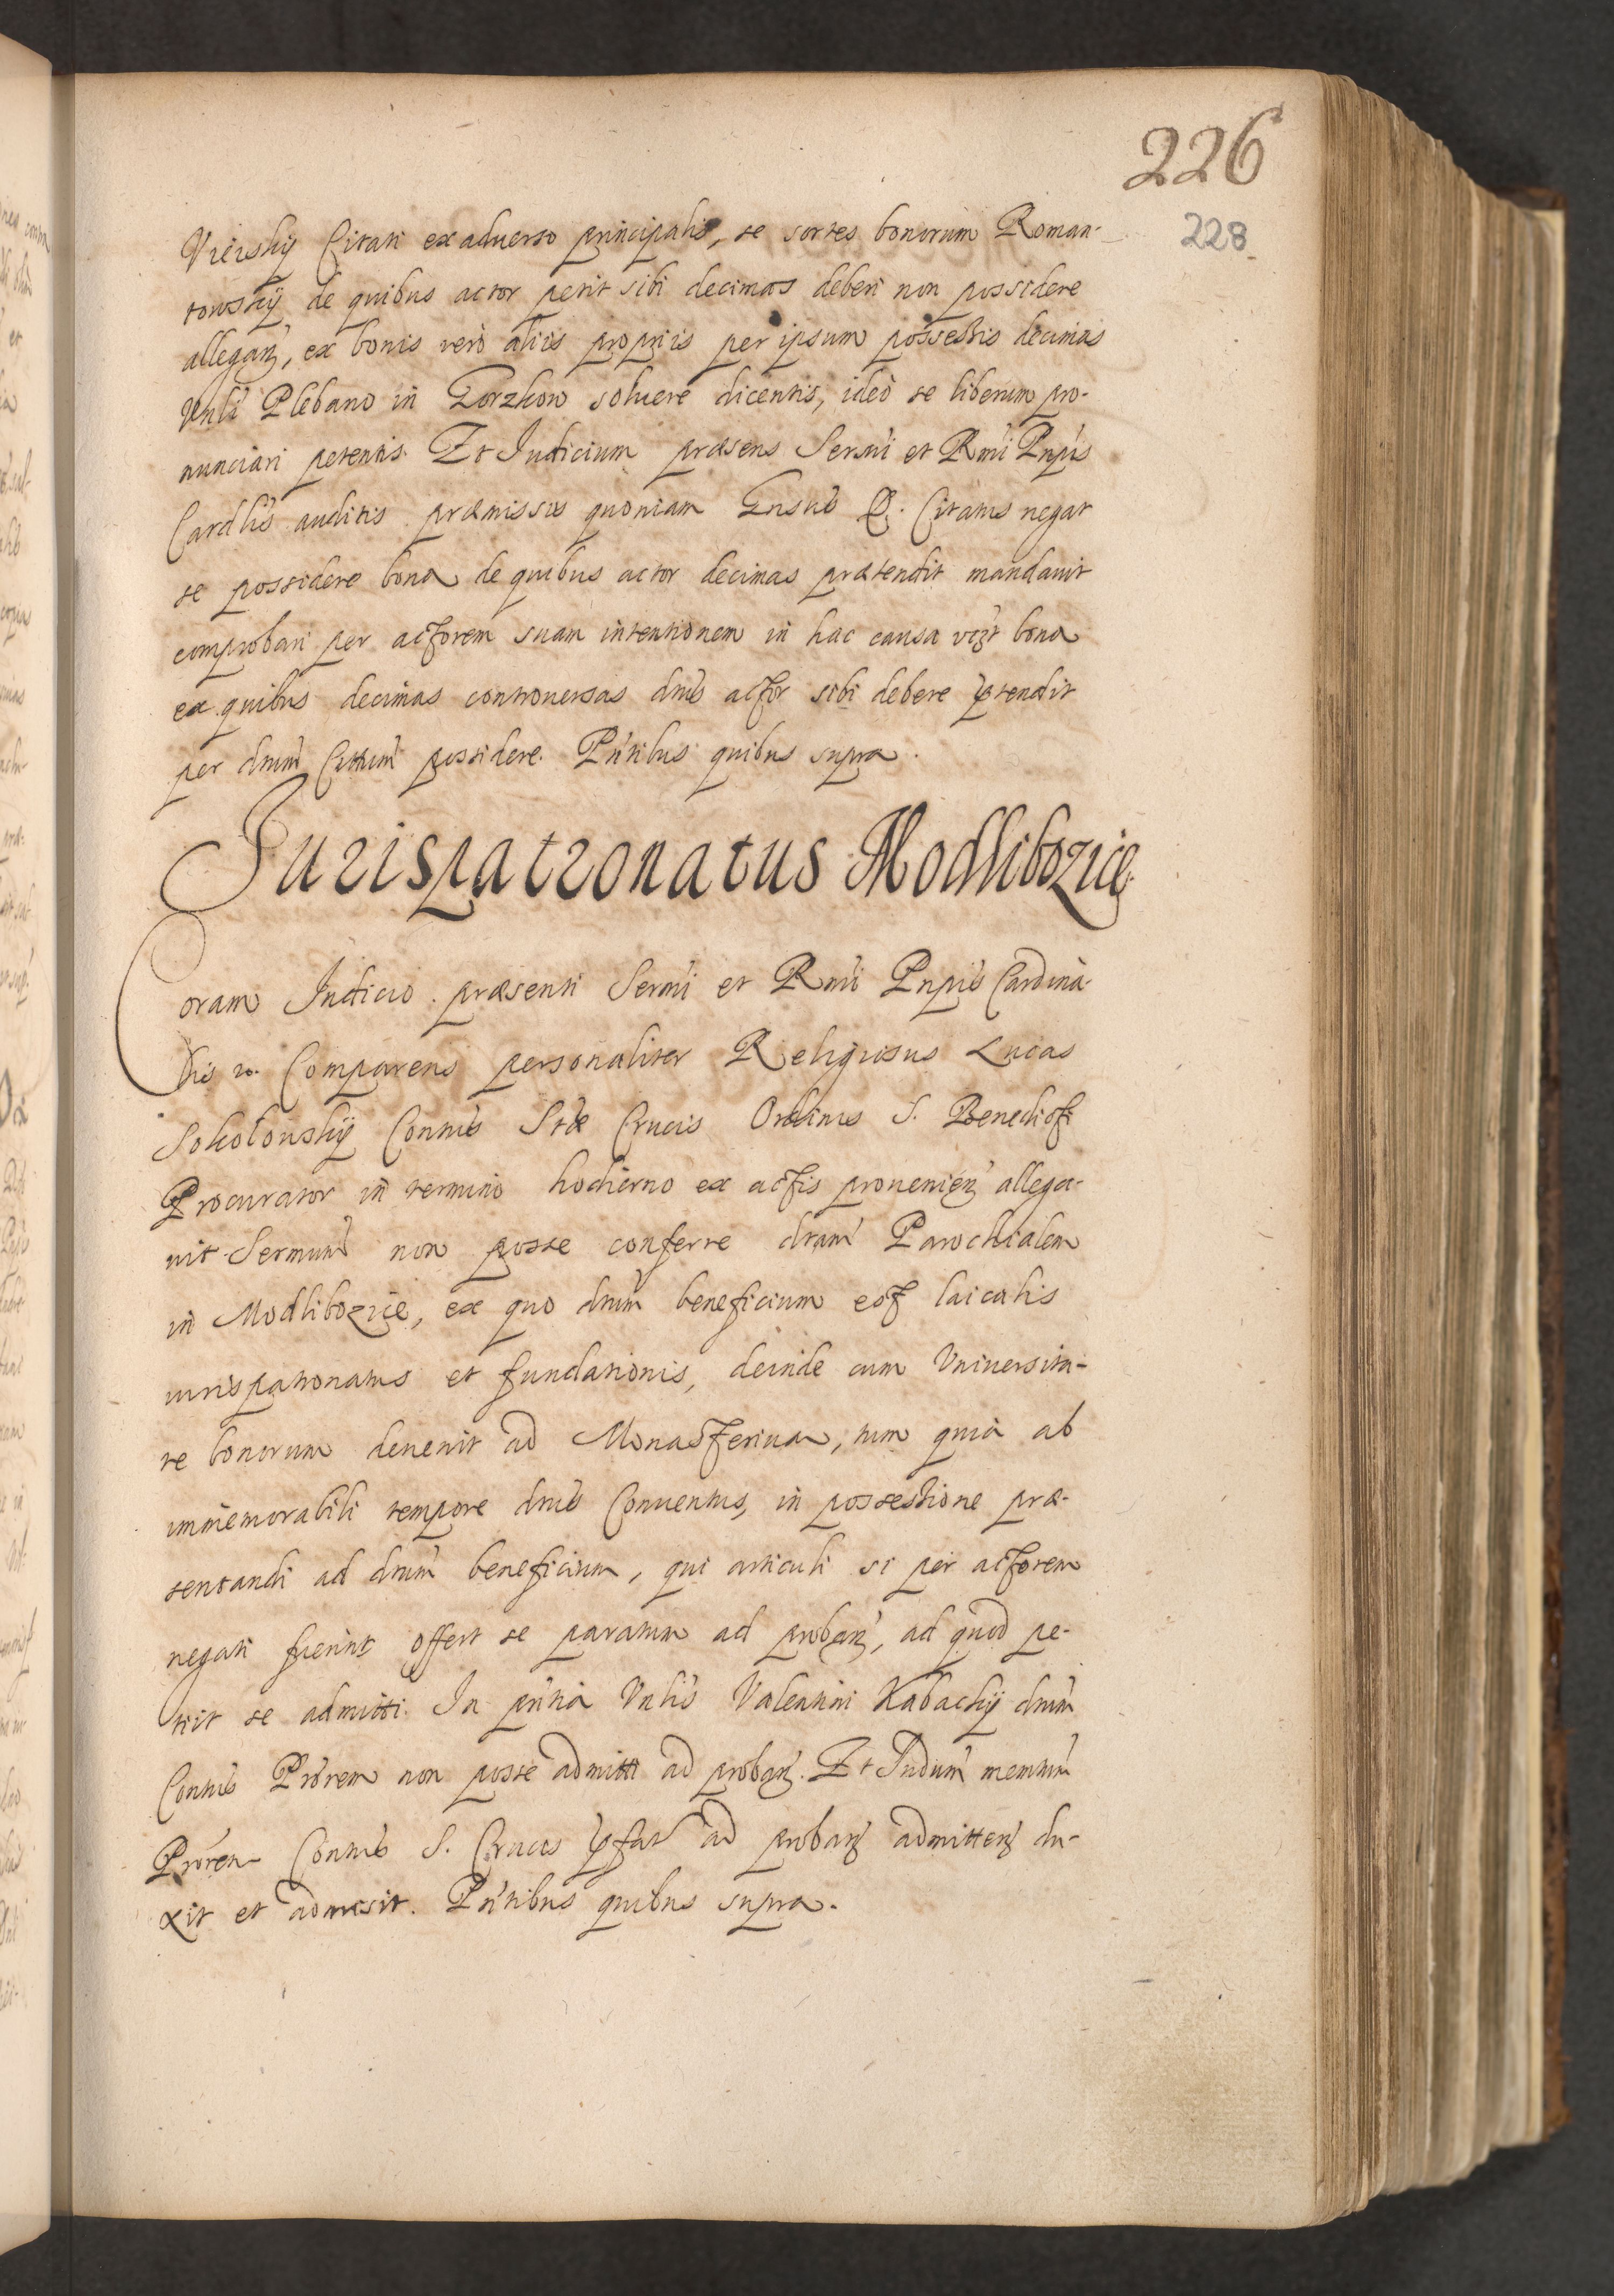 226
228
Vieiskÿ Citati ex aduerso principalis, se sortes bonorum Roman-
towskÿ de quibus actor petit sibi decimas deberi non possidere
allegan, ex bonis verò aliis propriis per ipsum possessis decimas
Vnli Plebano in Gorzkow soluere dicentis, ideò se liberum pro-
nunciari petentis. Et Iudicium præsens Sermi et Rmi Pnpis
Cardlis auditis præmissis quoniam Gnsus D. Citatus negat
se possidere bona de quibus actor decimas prætendit mandauit
comprobari per actorem suam intentionem in hac causa vizt bona
ex quibus decimas controuersas dnus actor sibi debere prtendit
per dnum Cittum possidere. Pntibus quibus supra.
Jurispatronatus Modlibozice.
Coram Iudicio præsenti Sermi et Rmi Pnpis Cardina-
lis &. Comparens personaliter Religiosus Lucas
Sokolouskÿ Contus Stæ Crucis Ordinis S. Benedicti
Procurator in termino hodierno ex actis prouenien allega-
uit Sermum non posse conferre dnam Parochialem
in Modlibozice, ex quo dnum beneficium est laicalis
iurispatronatus et fundationis, deinde cum Vniuersita-
te bonorum deuenit ad Monasterium, tum quia ab
immemorabili tempore dnus Conuentus, in possessione præ-
sentandi ad dnum beneficium, qui articuli si per actorem
negati fuerint offert se paratum ad proban, ad quod pe-
tiit se admitti. In pntia Vnlis Valentini Kabackÿ dnum
Contus Prorem non posse admitti ad proban. Et Iudum memtum
Prorem Contus S. Crucis prfat ad proban admitten du-
xit et admisit. Pntibus quibus supra.